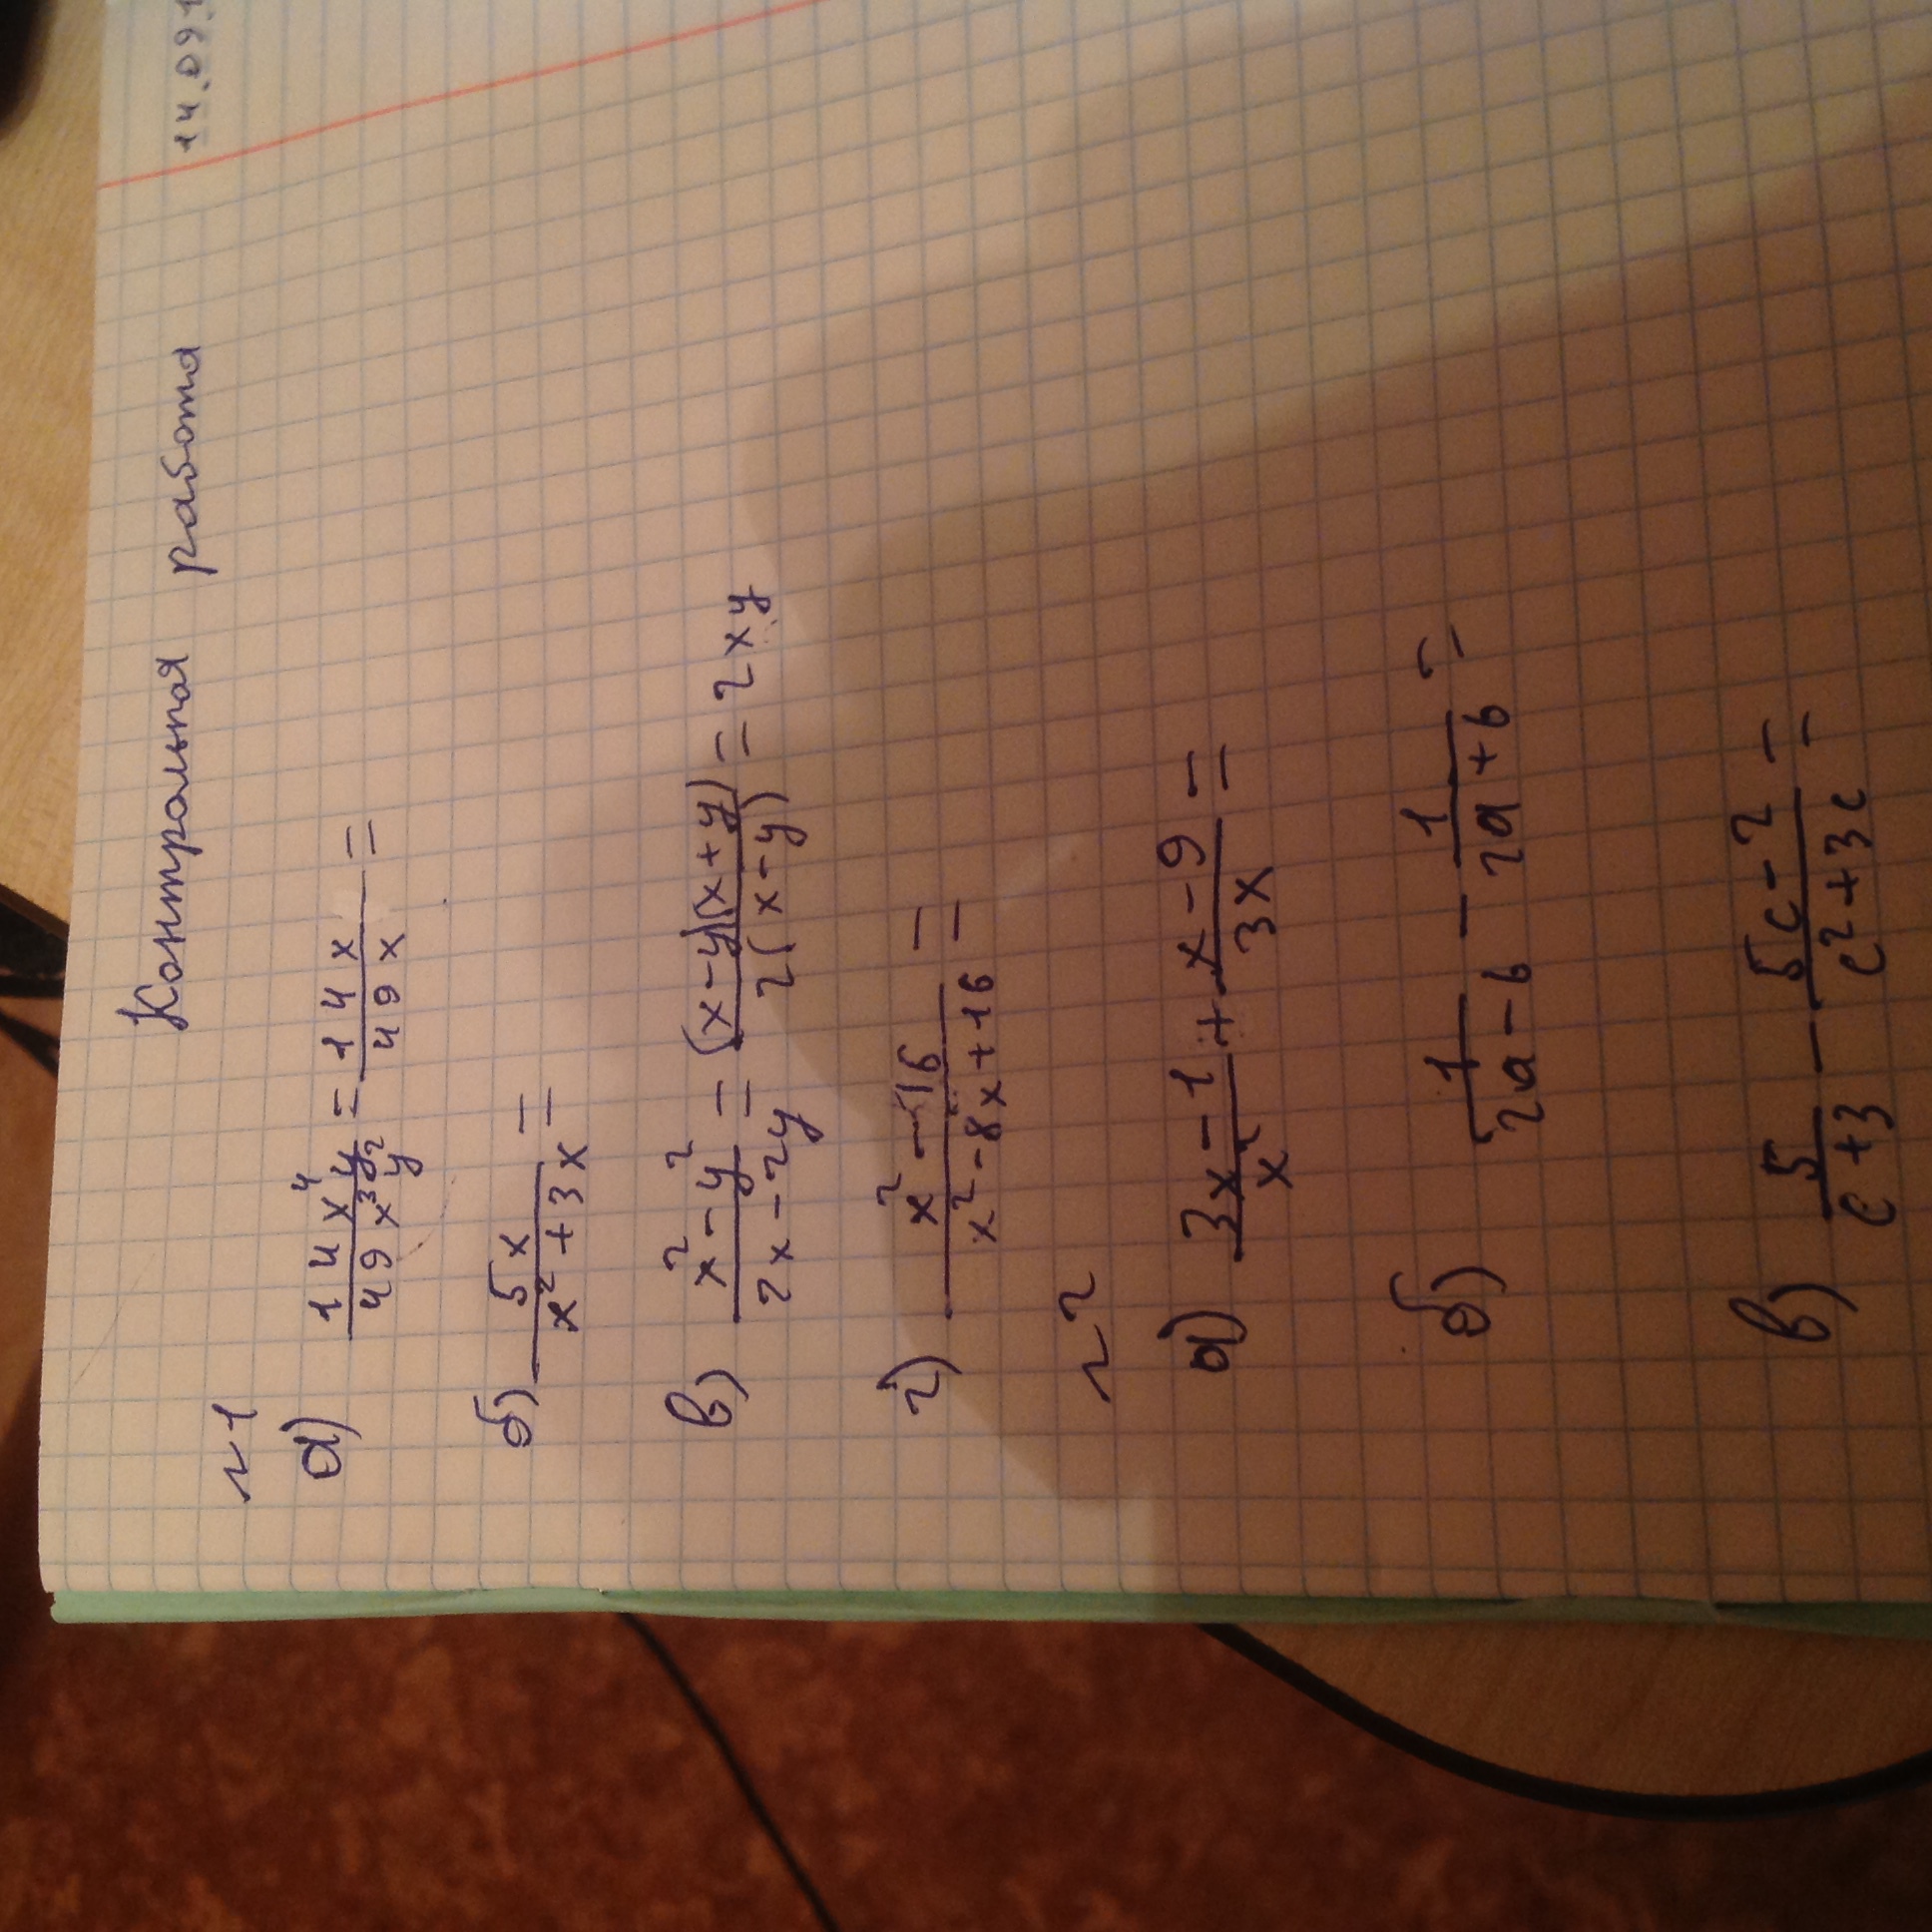 14.09.1
Контрольная работа
№1
а) 14x⁴y / 49x³y² = 14x / 49x =
б) 5x / x²+3x =
в) x²-y² / 2x-2y = (x-y)(x+y) / 2(x-y) = 2xy
г) x²-16 / x²-8x+16 =
№2
а) 3x-1 / x² + x-9 / 3x =
б) 1 / 2a-b - 1 / 2a+b =
в) 5 / c+3 - 5c-2 / c²+3c =